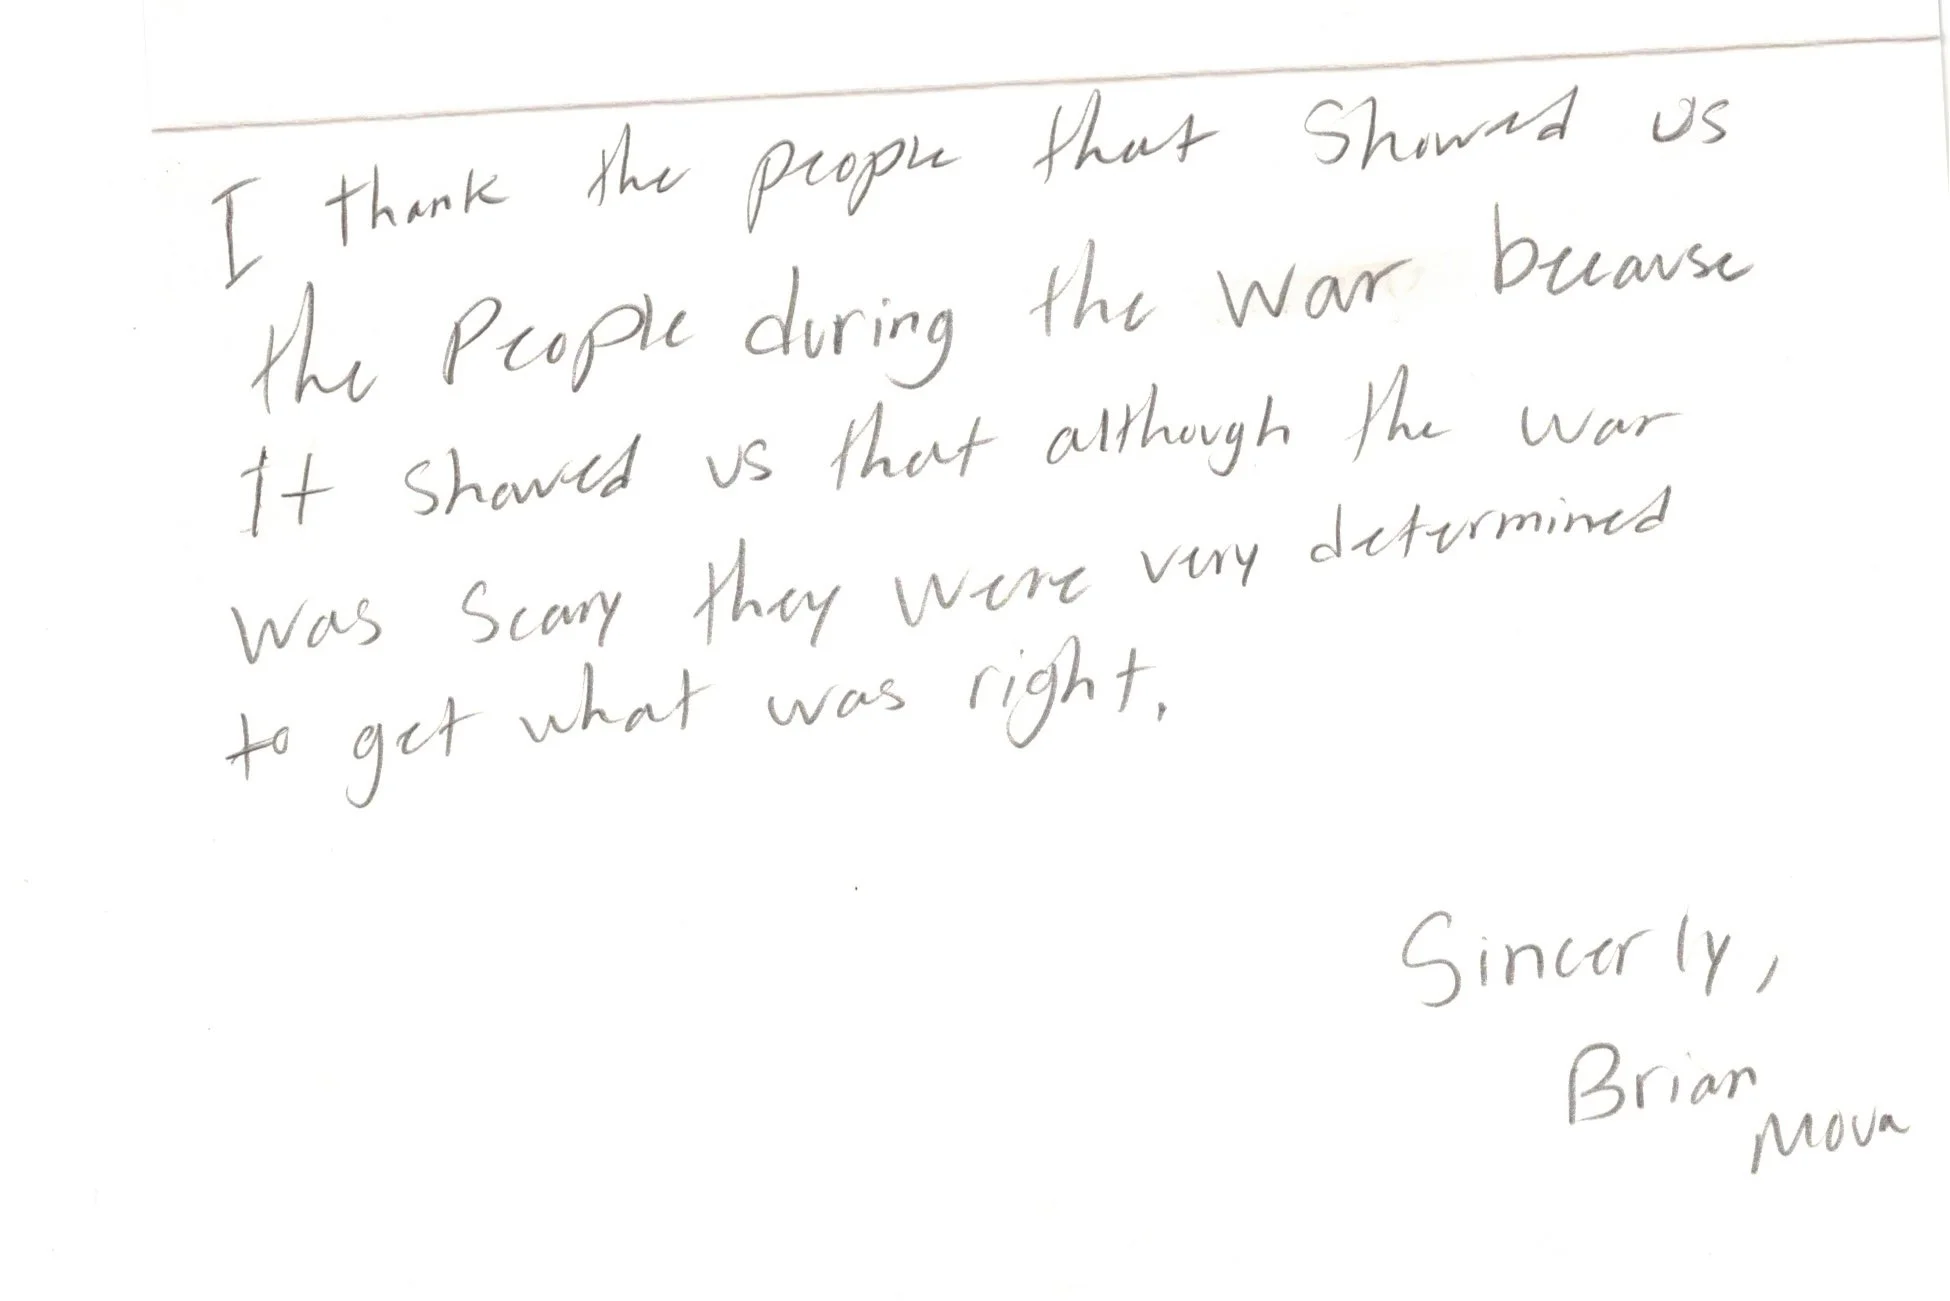 I thank the people that showed us
the People during the war because
It showed us that although the war
was scary they were very determined
to get what was right.
Sincerly,
Brian
Mova